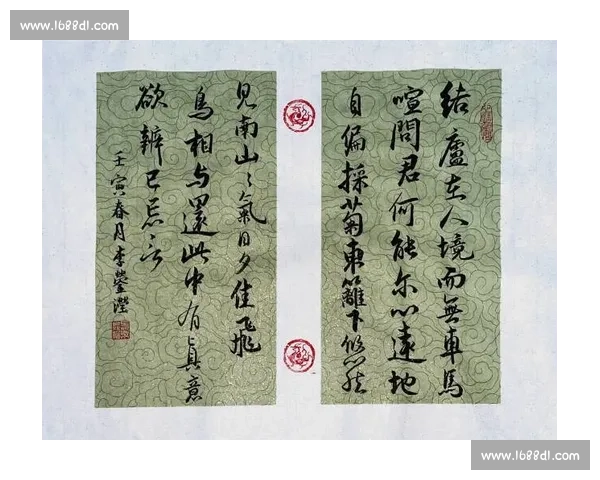 www.1688dl.com
結廬在人境而無車馬
喧問君何能尔心遠地
自偏採菊東籬下悠然
見南山〻氣日夕佳飛
鳥相与還此中有真意
欲辨已忘言
壬寅春月李
www.1688dl.com